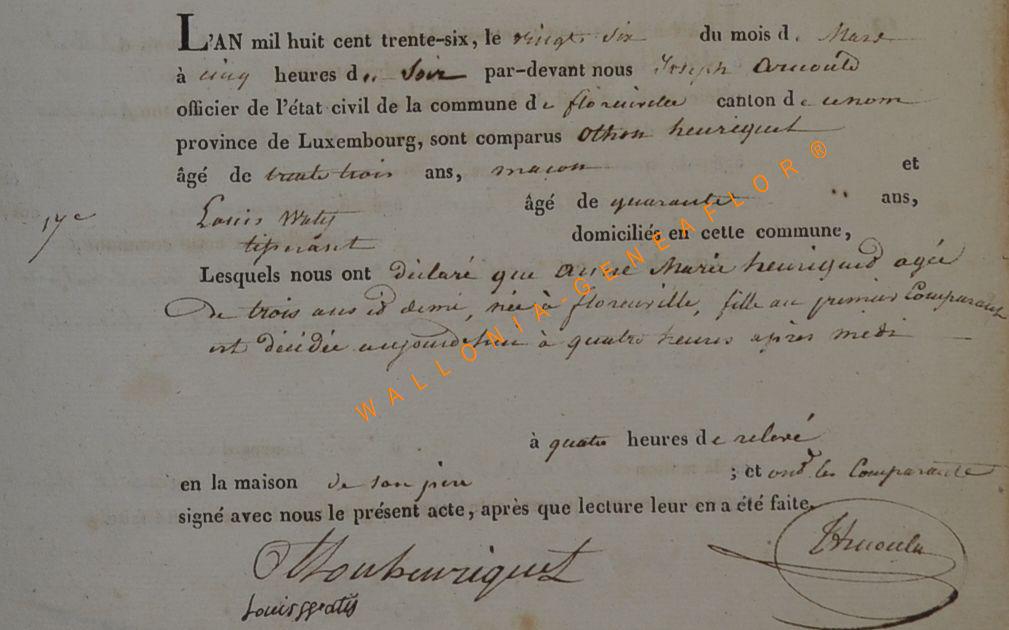 L'AN mil huit cent trente-six, le vingt six du mois de Mars
à cinq heures du Soir par-devant nous Joseph Arnould
officier de l'état civil de la commune de florenville canton de cenom
province de Luxembourg, sont comparus Othon henriquet
âgé de trente trois ans, maçon et
17e
Louis Waty âgé de quarante ans,
tisserant domiciliés en cette commune,
Lesquels nous ont déclaré que anne Marie henriquet agée
De trois ans et demi, née à florenville, fille au premier Comparant
est décédée aujourdhui à quatre heures après midi
à quatre heures de relevé
en la maison de son père ; et ont les Comparants
signé avec nous le présent acte, après que lecture leur en a été faite.
Othonhenriquet
JArnould
Louis
WALLONIA-GENEAFLOR ®